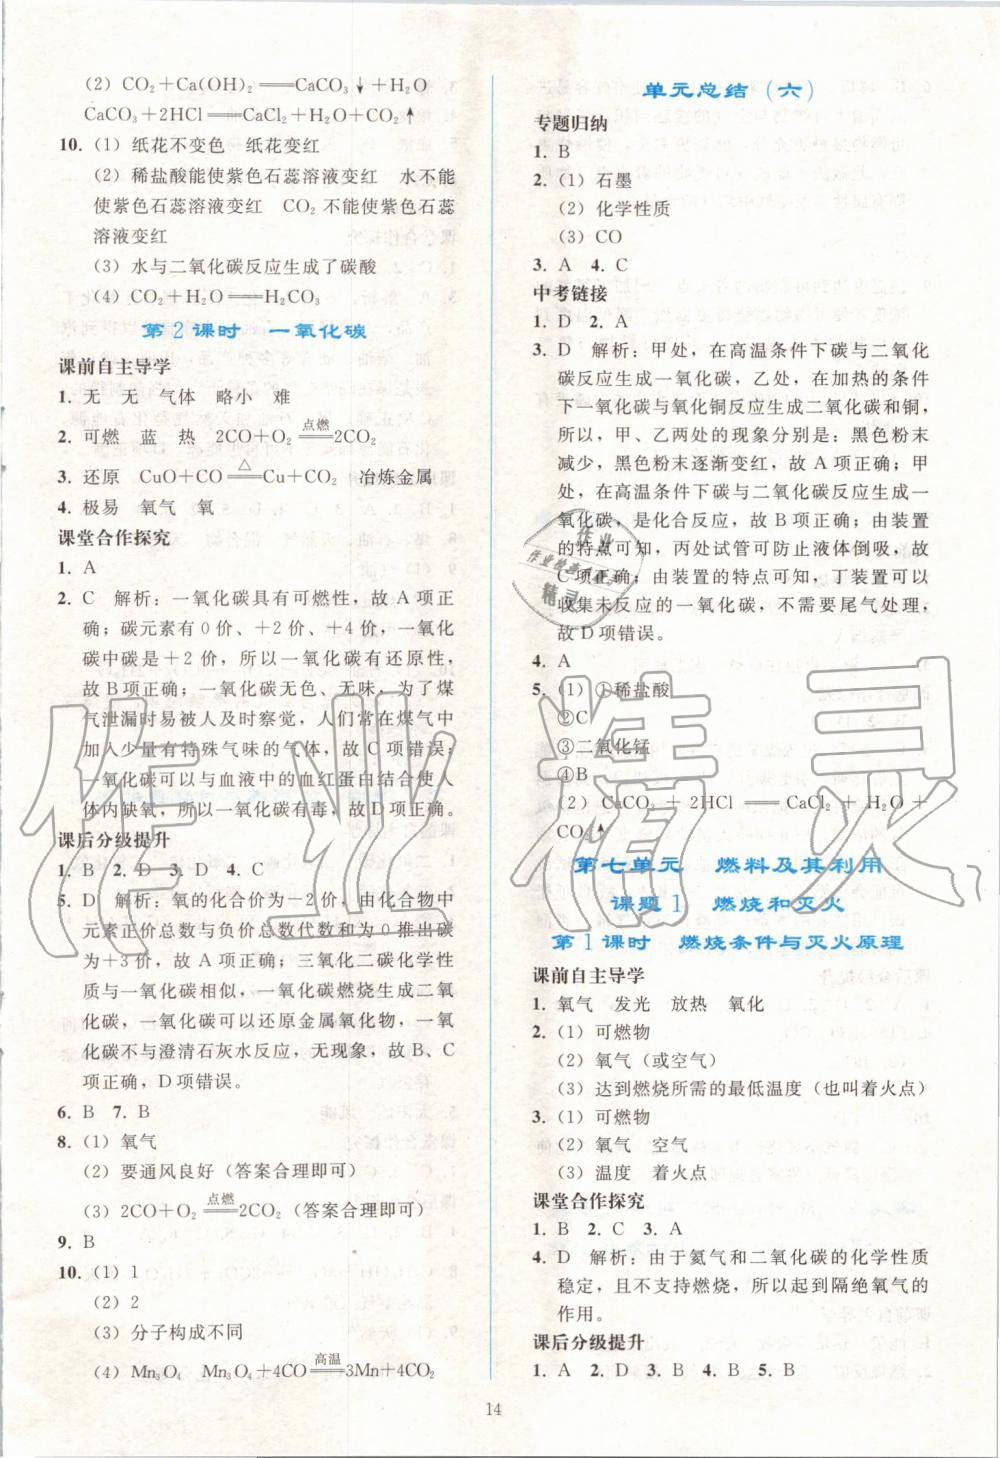 (2) CO₂+Ca(OH)₂══CaCO₃↓+H₂O
CaCO₃+2HCl══CaCl₂+H₂O+CO₂↑
10. (1) 纸花不变色 纸花变红
(2) 稀盐酸能使紫色石蕊溶液变红 水不能
使紫色石蕊溶液变红 CO₂ 不能使紫色石蕊
溶液变红
(3) 水与二氧化碳反应生成了碳酸
(4) CO₂+H₂O══H₂CO₃
第 2 课时 一氧化碳
课前自主导学
1. 无 无 气体 略小 难
2. 可燃 蓝 热 2CO+O₂ 点燃══ 2CO₂
3. 还原 CuO+CO △══ Cu+CO₂ 冶炼金属
4. 极易 氧气 氧
课堂合作探究
1. A
2. C 解析：一氧化碳具有可燃性，故 A 项正
确；碳元素有 0 价、+2 价、+4 价，一氧化
碳中碳是+2 价，所以一氧化碳有还原性，
故 B 项正确；一氧化碳无色、无味，为了煤
气泄漏时易被人及时察觉，人们常在煤气中
加入少量有特殊气味的气体，故 C 项错误；
一氧化碳可以与血液中的血红蛋白结合使人
体内缺氧，所以一氧化碳有毒，故 D 项正确。
课后分级提升
1. B 2. D 3. D 4. C
5. D 解析：氧的化合价为-2 价，由化合物中
元素正价总数与负价总数代数和为 0 推出碳
为+3 价，故 A 项正确；三氧化二碳化学性
质与一氧化碳相似，一氧化碳燃烧生成二氧
化碳，一氧化碳可以还原金属氧化物，一氧
化碳不与澄清石灰水反应，无现象，故 B、C
项正确，D 项错误。
6. B 7. B
8. (1) 氧气
(2) 要通风良好（答案合理即可）
(3) 2CO+O₂ 点燃══ 2CO₂（答案合理即可）
9. B
10. (1) 1
(2) 2
(3) 分子构成不同
(4) Mn₃O₄ Mn₃O₄+4CO 高温══ 3Mn+4CO₂
单元总结（六）
专题归纳
1. B
2. (1) 石墨
(2) 化学性质
(3) CO
3. A 4. C
中考链接
1. D 2. A
3. D 解析：甲处，在高温条件下碳与二氧化
碳反应生成一氧化碳，乙处，在加热的条件
下一氧化碳与氧化铜反应生成二氧化碳和铜，
所以，甲、乙两处的现象分别是：黑色粉末
减少，黑色粉末逐渐变红，故 A 项正确；甲
处，在高温条件下碳与二氧化碳反应生成一
氧化碳，是化合反应，故 B 项正确；由装置
的特点可知，丙处试管可防止液体倒吸，故
C 项正确；由装置的特点可知，丁装置可以
收集未反应的一氧化碳，不需要尾气处理，
故 D 项错误。
4. A
5. (1) ①稀盐酸
②C
③二氧化锰
④B
(2) CaCO₃ + 2HCl ══ CaCl₂ + H₂O +
CO₂↑
第七单元 燃料及其利用
课题 1 燃烧和灭火
第 1 课时 燃烧条件与灭火原理
课前自主导学
1. 氧气 发光 放热 氧化
2. (1) 可燃物
(2) 氧气（或空气）
(3) 达到燃烧所需的最低温度（也叫着火点）
3. (1) 可燃物
(2) 氧气 空气
(3) 温度 着火点
课堂合作探究
1. B 2. C 3. A
4. D 解析：由于氦气和二氧化碳的化学性质
稳定，且不支持燃烧，所以起到隔绝氧气的
作用。
课后分级提升
1. A 2. D 3. B 4. B 5. B
14
作业精灵